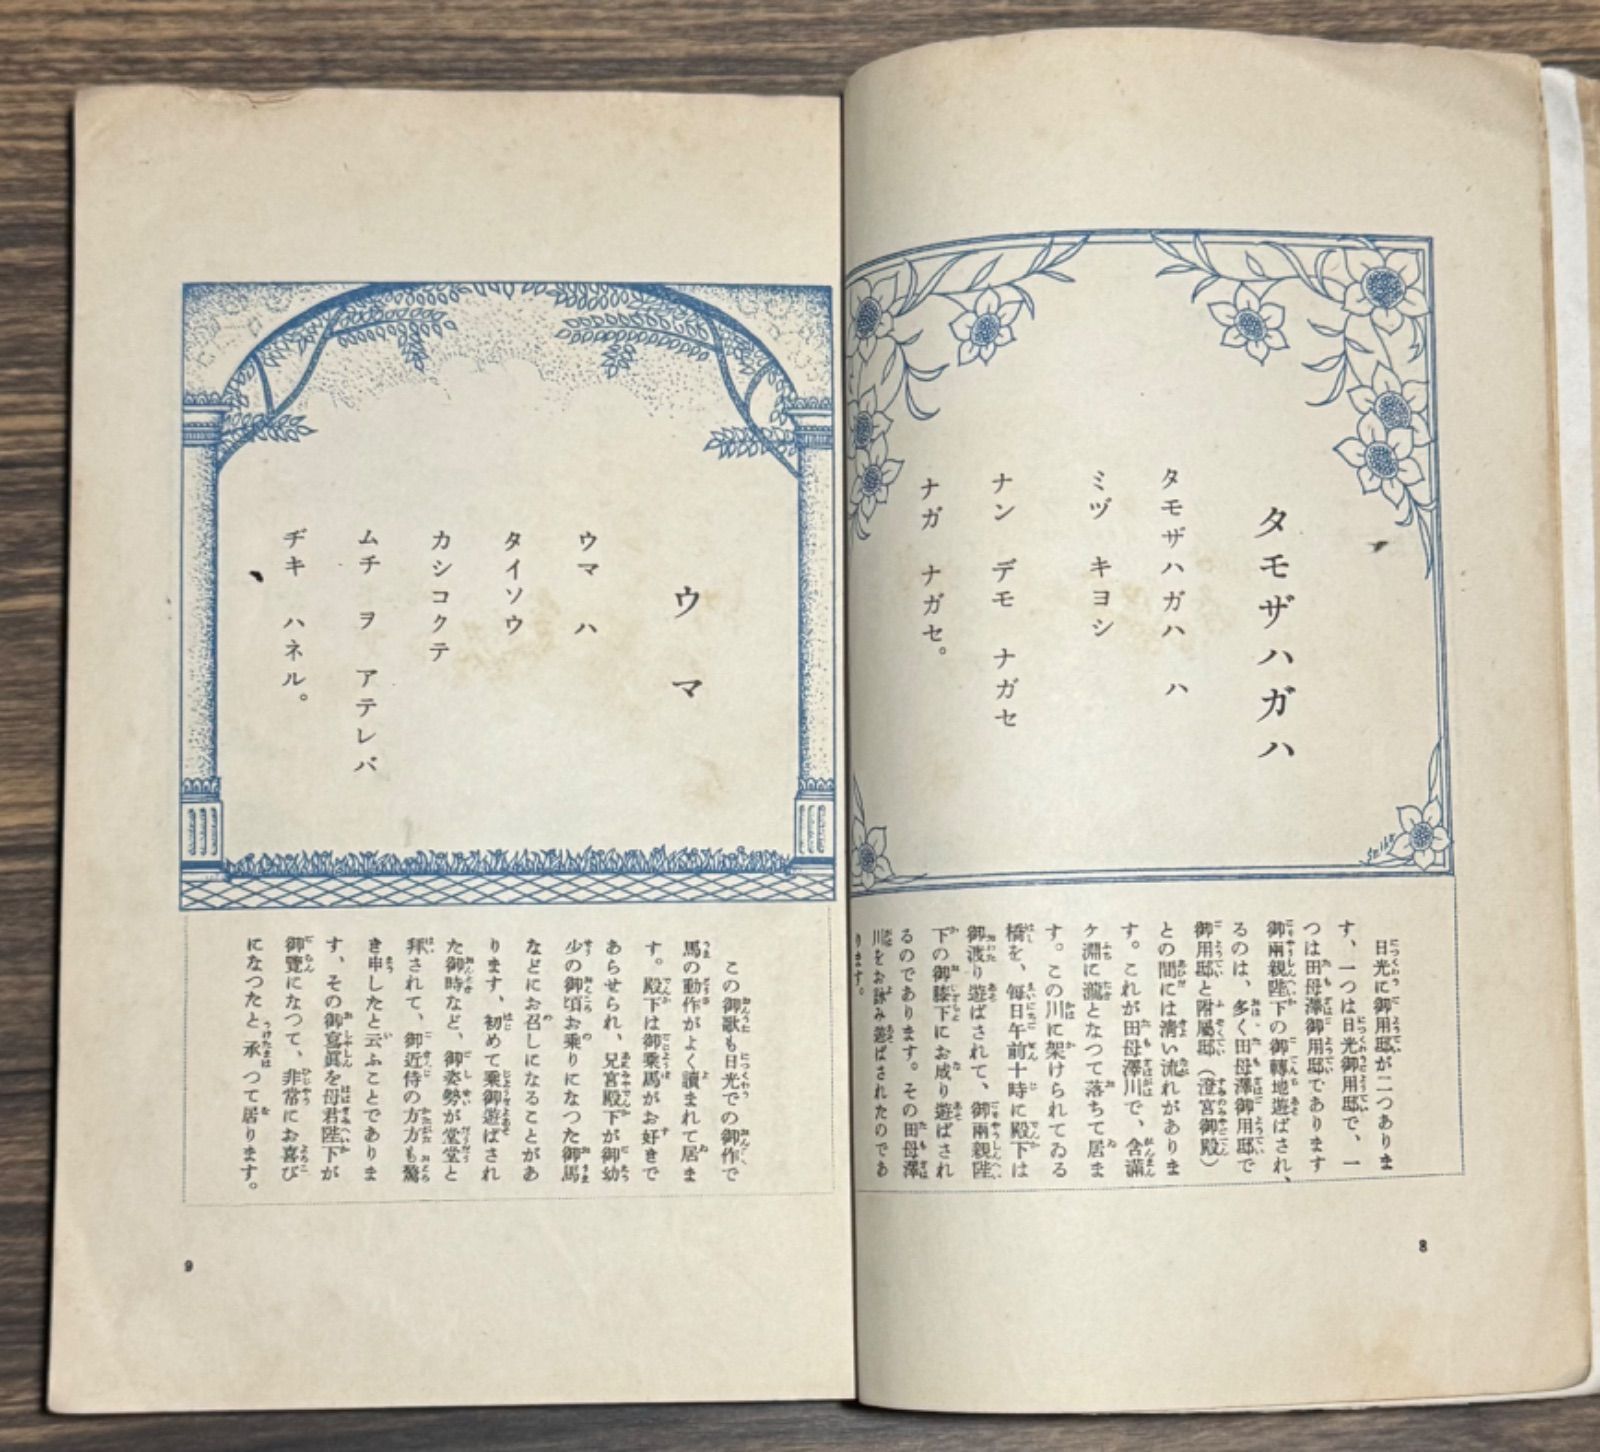 タモザハガハ
タモザハガハ ハ
ミヅ キヨシ
ナン デモ ナガセ
ナガ ナガセ。
日光に御用邸が二つありま
す、一つは日光御用邸で、一
つは田母澤御用邸であります
御兩親陛下の御轉地遊ばされ、
るのは、多く田母澤御用邸で
御用邸と附屬邸（澄宮御殿）
との間には淸い流れがありま
す。これが田母澤川で、含滿
ケ淵に瀧となつて落ちて居ま
す。この川に架けられてゐる
橋を、毎日午前十時に殿下は
御渡り遊ばされて、御兩親陛
下の御膝下にお成り遊ばされ
るのであります。その田母澤
川をお詠み遊ばされたのであ
ります。
8
ウマ
ウマ ハ
タイソウ
カシコクテ
ムチ ヲ アテレバ
ヂキ ハネル。
この御歌も日光での御作で
馬の動作がよく讀まれて居ま
す。殿下は御乘馬がお好きで
あらせられ、兄宮殿下が御幼
少の御頃お乘りになつた御馬
などにお召しになることがあ
ります、初めて乘御遊ばされ
た御時など、御姿勢が堂堂と
拜されて、御近侍の方方も驚
き申したと云ふことでありま
す、その御寫眞を母君陛下が
御覽になつて、非常にお喜び
になつたと承つて居ります。
9